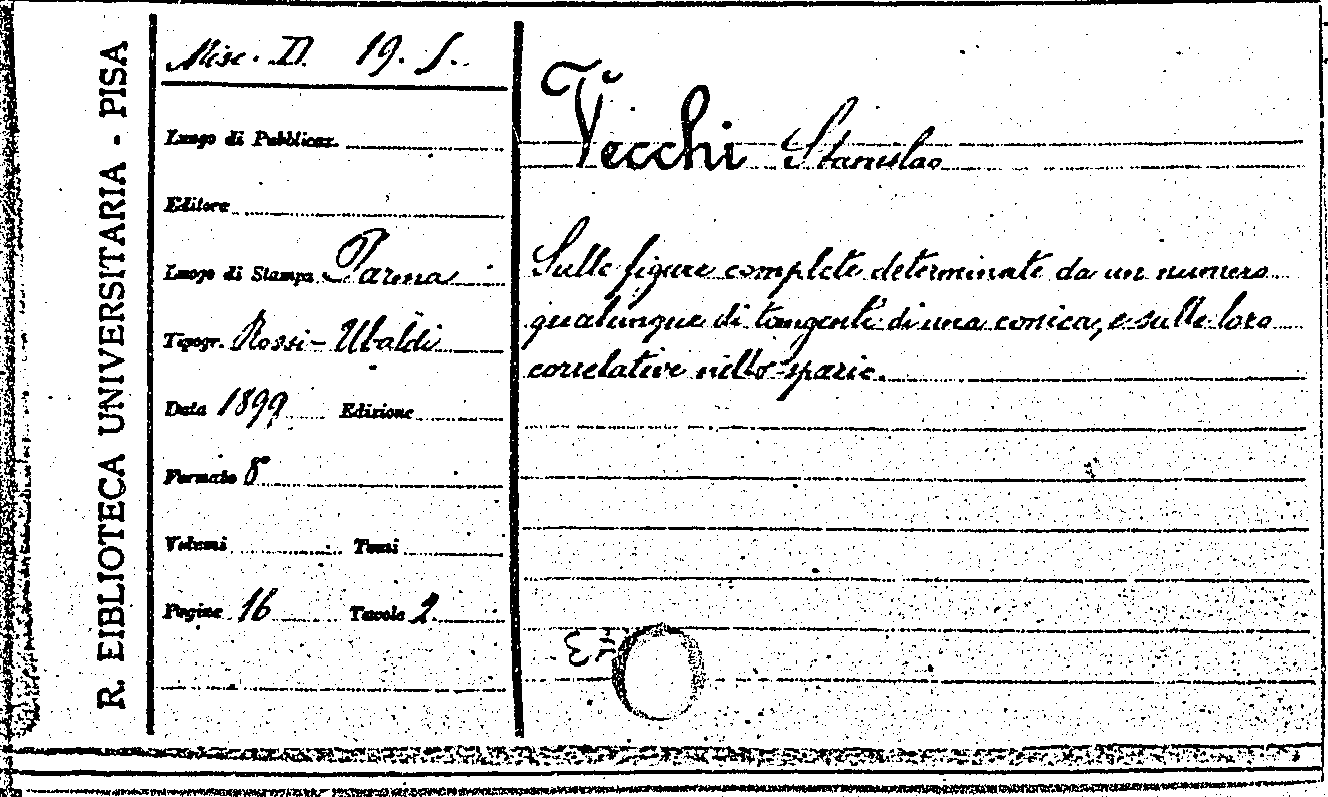 R. BIBLIOTECA UNIVERSITARIA - PISA
Misc. D. 19. 5.
Luogo di Pubblicaz.
Editore
Luogo di Stampa Parma
Tipogr. Rossi-Ubaldi
Data 1899 Edizione
Formato 8°
Volumi Tomi
Pagine 16 Tavole 2
Vecchi Stanislao
Sulle figure complete determinate da un numero
qualunque di tangenti di una conica, e sulle loro
correlative nello spazio.